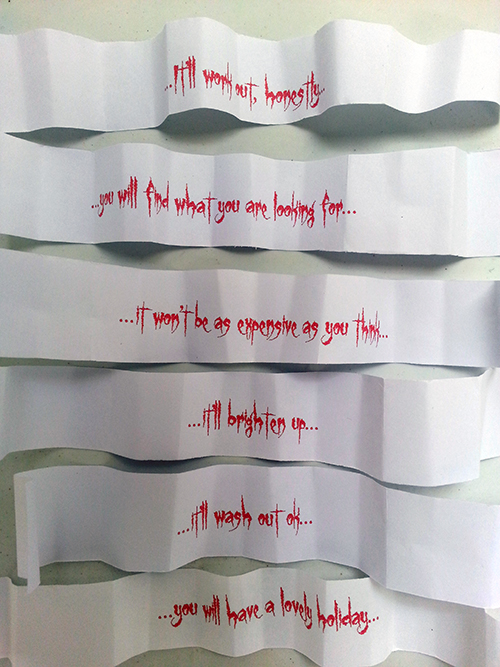 ...it'll work out, honestly...
...you will find what you are looking for...
...it won't be as expensive as you think...
...it'll brighten up...
...it'll wash out ok...
...you will have a lovely holiday...